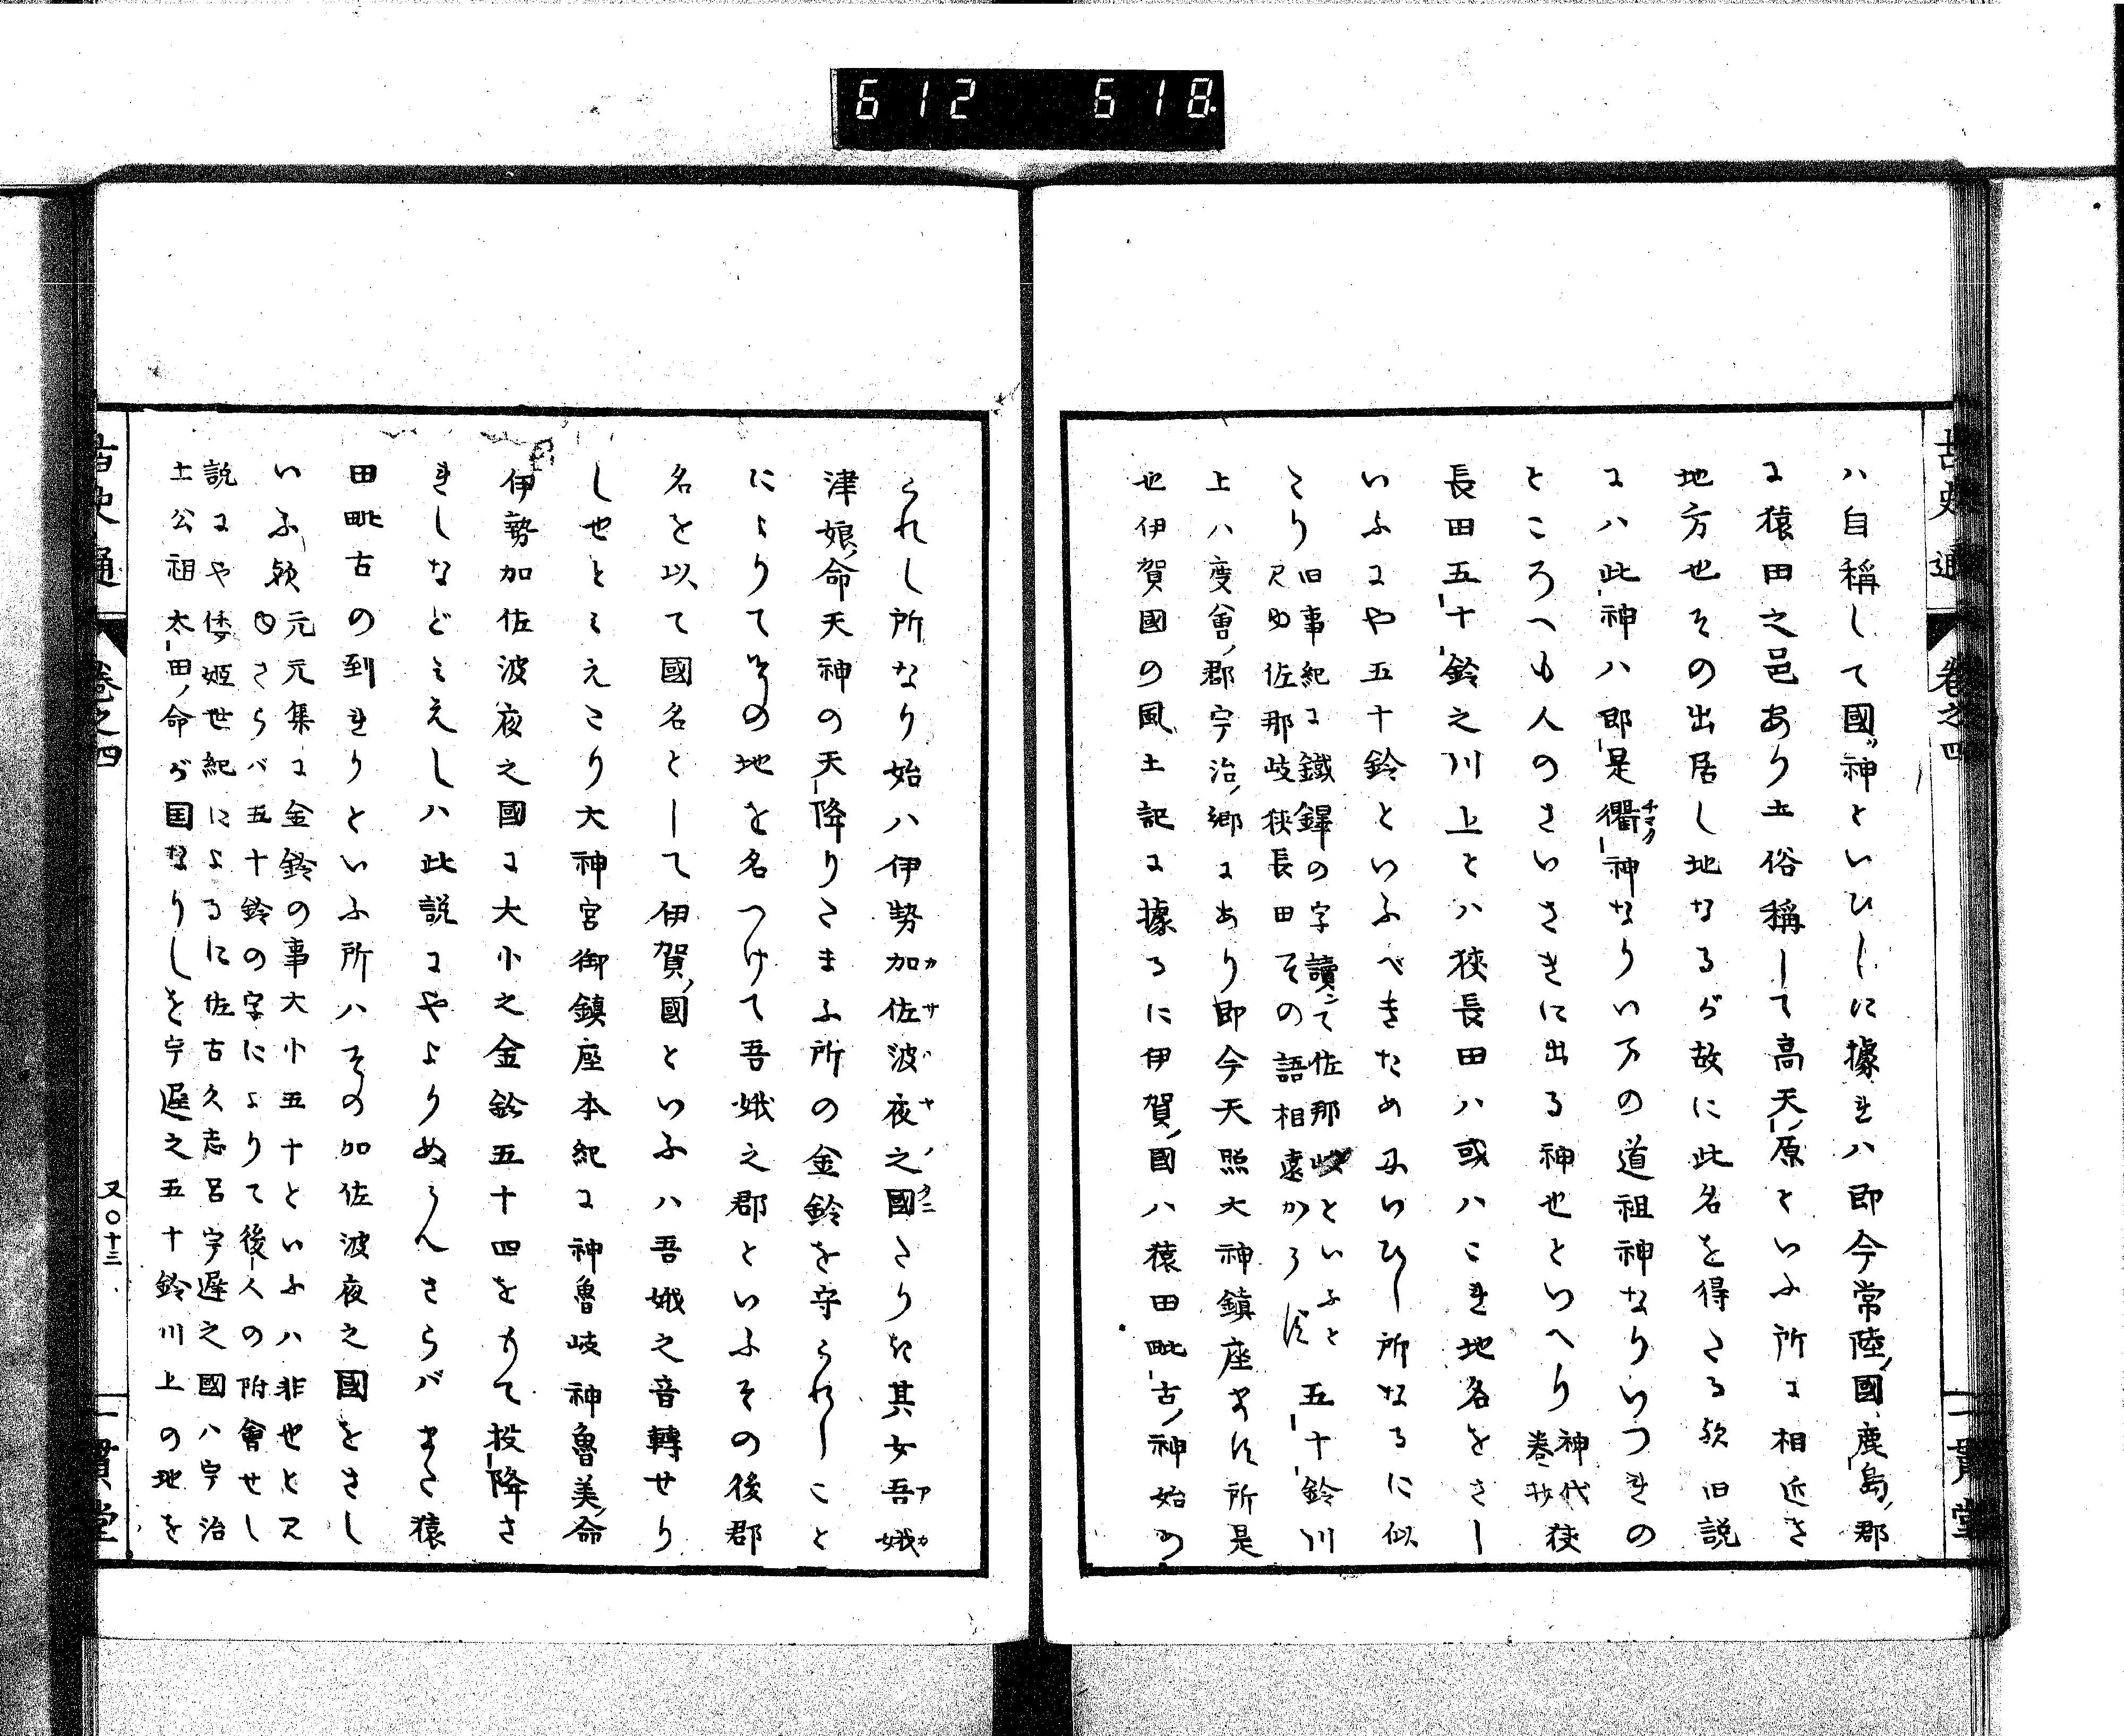 612 618
古史通 卷之四 一貫堂
ハ自稱して國ツ神といひしに據れハ即今常陸ノ國鹿島ノ郡
に猿田之邑あり土俗稱して高天ノ原といふ所に相近き
地方也その出居し地なるが故に此名を得たる歟旧説
にハ此神ハ即是衢チマタ神なりいはの道祖神なりいつれの
ところへも人のさいさきに出る神也といへり神代卷抄狹
長田五十鈴之川上とハ狹長田ハ或ハこれ地名をさし
いふにや五十鈴といふべきためにいひし所なるに似
たり旧事紀に鐵鐸の字讀て佐那岐といふと
及妙佐那岐狹長田その語相遠からす五十鈴川
上ハ度會ノ郡宇治ノ郷にあり即今天照大神鎮座ます所是
也伊賀國の風土記に據るに伊賀ノ國ハ猿田毗古ノ神始め
られし所なり始ハ伊勢加カ佐サ波ハ夜ヤ之ノ國クニたりき其女吾ア娥カ
津娘ノ命天神の天降りたまふ所の金鈴を守られしこと
によりてその地を名つけて吾娥之郡といふその後郡
名を以て國名として伊賀ノ國といふハ吾娥之音轉せり
しせとみえたり大神宮御鎮座本紀に神魯岐神魯美ノ命
伊勢加佐波夜之國に大小之金鈴五十四をもて投降さ
れしなどみえしハ此説にやよりぬらんさらバまた猿
田毗古の到れりといふ所ハその加佐波夜之國をさし
いふ歟元元集に金鈴の事大小五十といふハ非也とス
さらバ五十鈴の字によりて後人の附會せし
説にや倭姫世紀によるに佐古久志呂宇遲之國ハ宇治
土公祖太田ノ命が国なりしを宇遲之五十鈴川上の地を
古史通 卷之四 又〇十三 一貫堂